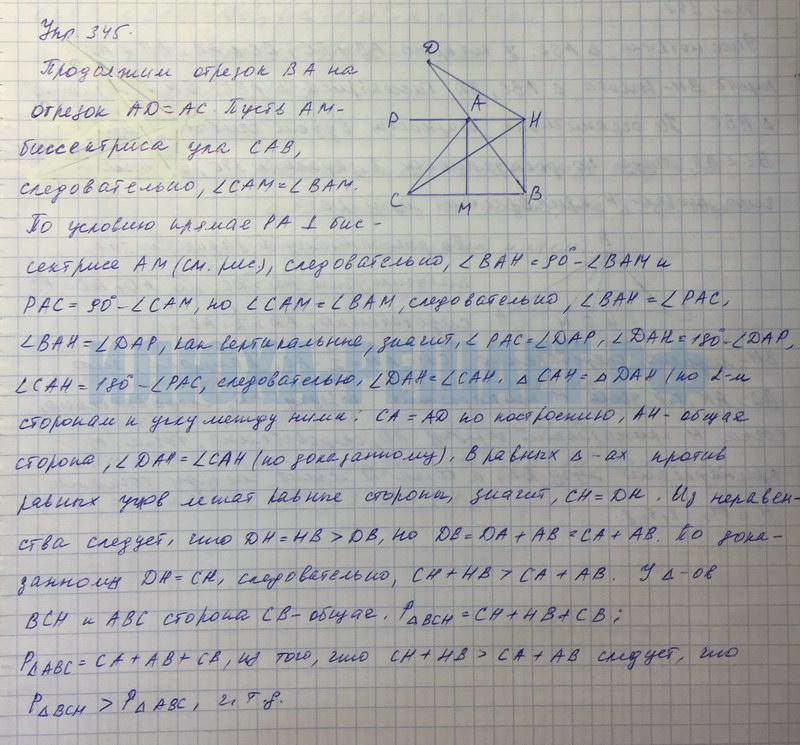 Упр. 345.
Продолжим отрезок BA на
отрезок AD=AC. Пусть AM-
биссектриса угла CAB,
следовательно, ∠CAM=∠BAM.
По условию прямая PA ⊥ бис-
сектрисе AM (см. рис), следовательно, ∠BAH=90°-∠BAM и
PAC=90°-∠CAM, но ∠CAM=∠BAM, следовательно, ∠BAH=∠PAC,
∠BAH=∠DAP, как вертикальные, значит, ∠PAC=∠DAP, ∠DAH=180°-∠DAP,
∠CAH=180°-∠PAC, следовательно, ∠DAH=∠CAH. △CAH=△DAH (по 2-м
сторонам и углу между ними: CA=AD по построению, AH-общая
сторона, ∠DAH=∠CAH (по доказанному). В равных △-ах против
равных углов лежат равные стороны, значит, CH=DH. Из неравен-
ства следует, что DH=HB>DB, но DB=DA+AB=CA+AB. По дока-
занному DH=CH, следовательно, CH+HB>CA+AB. У △-ов
BCH и ABC сторона CB-общая. P△BCH=CH+HB+CB;
P△ABC=CA+AB+CB, из того, что CH+HB>CA+AB следует, что
P△BCH>P△ABC, ч.т.д.
D
A
P
H
C
M
B